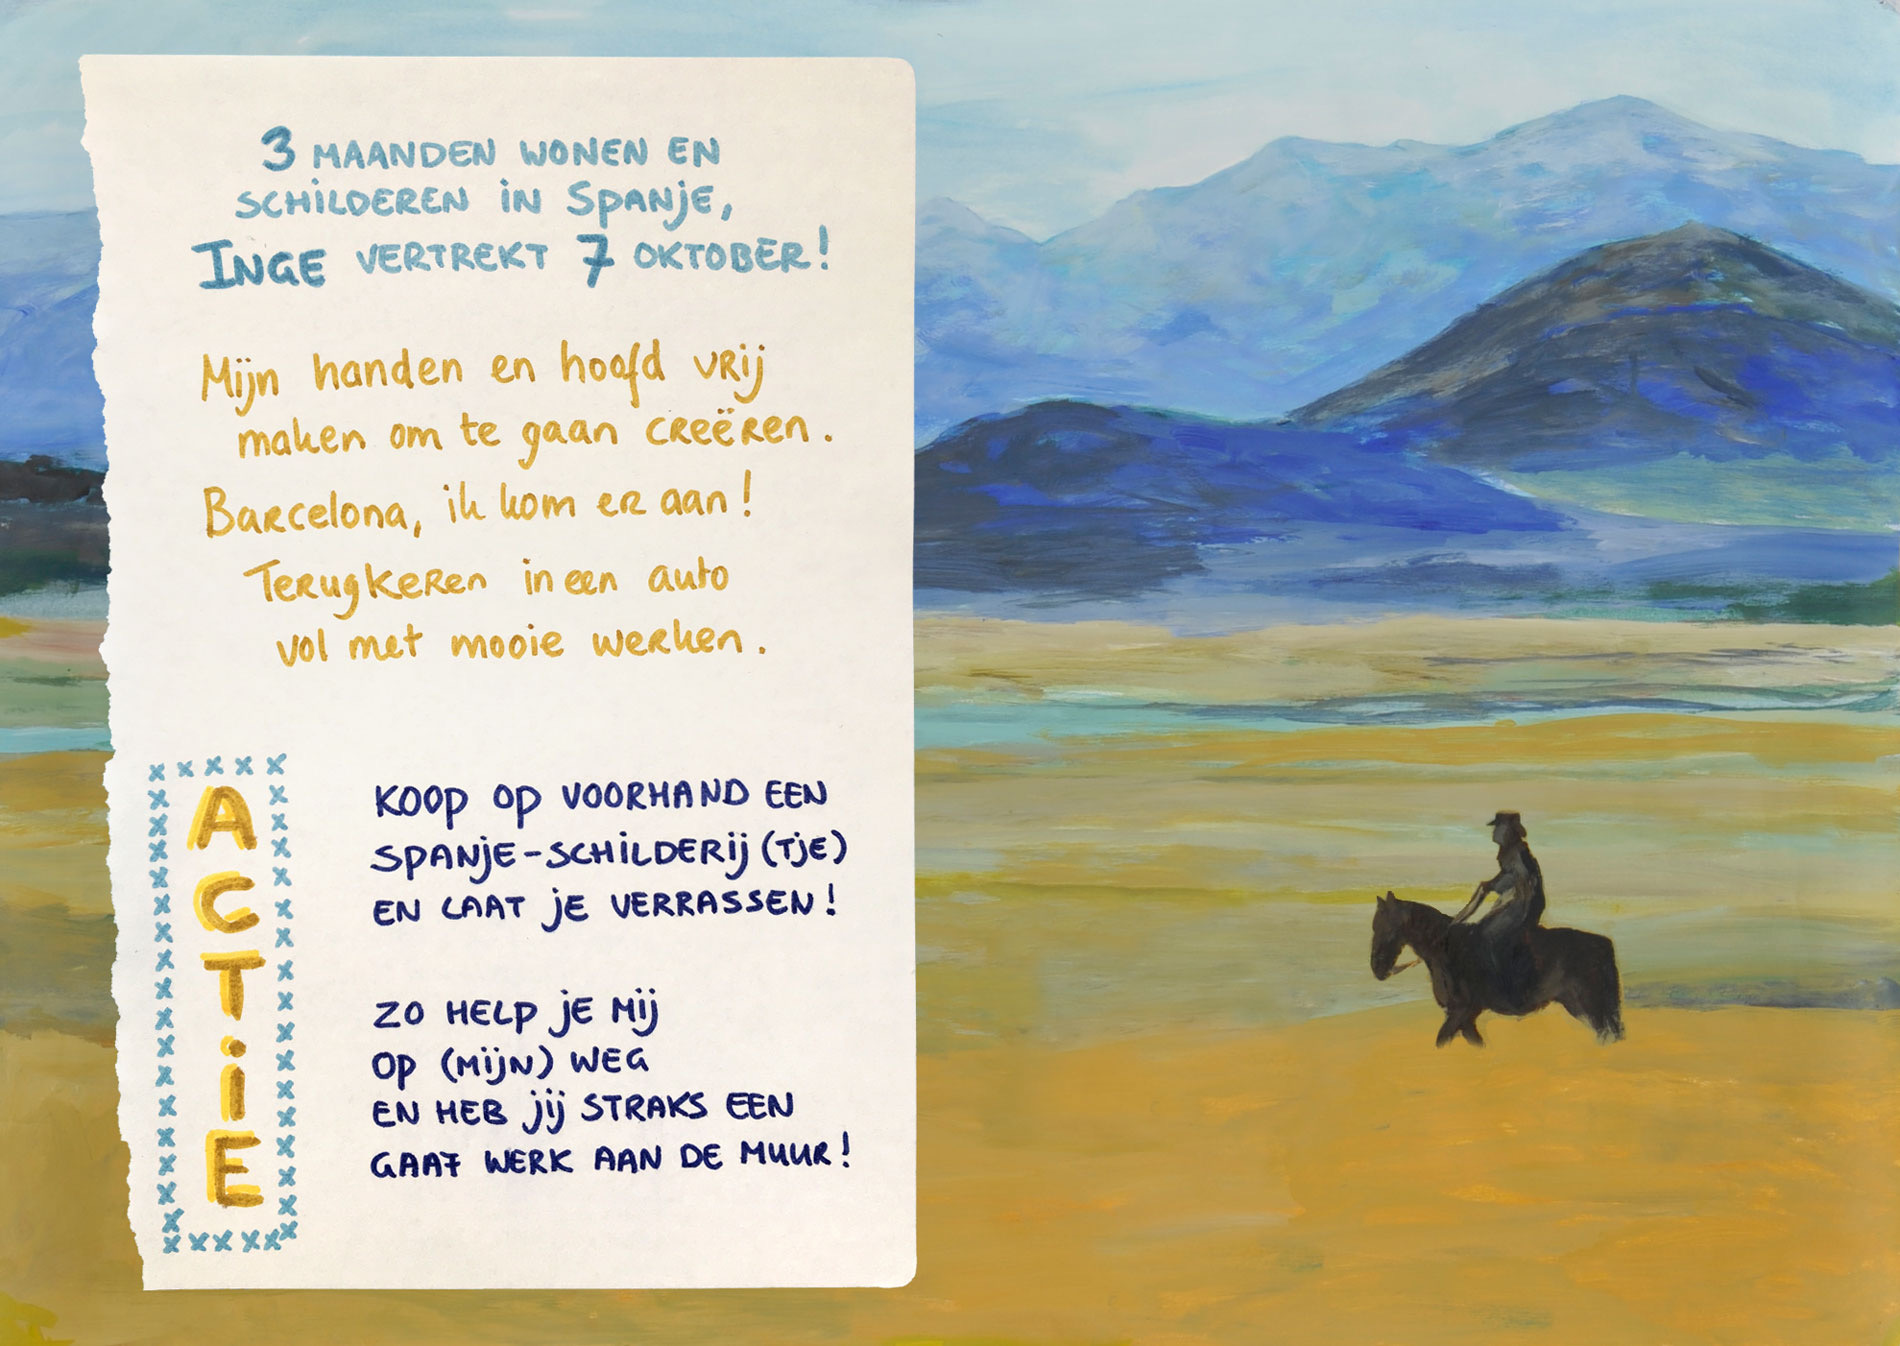 3 MAANDEN WONEN EN
SCHILDEREN IN SPANJE,
INGE VERTREKT 7 OKTOBER!
Mijn handen en hoofd vrij
maken om te gaan creëren.
Barcelona, ik kom er aan!
Terugkeren in een auto
vol met mooie werken.
ACTIE
KOOP OP VOORHAND EEN
SPANJE-SCHILDERIJ (TJE)
EN LAAT JE VERRASSEN!
ZO HELP JE MIJ
OP (MIJN) WEG
EN HEB JIJ STRAKS EEN
GAAF WERK AAN DE MUUR!